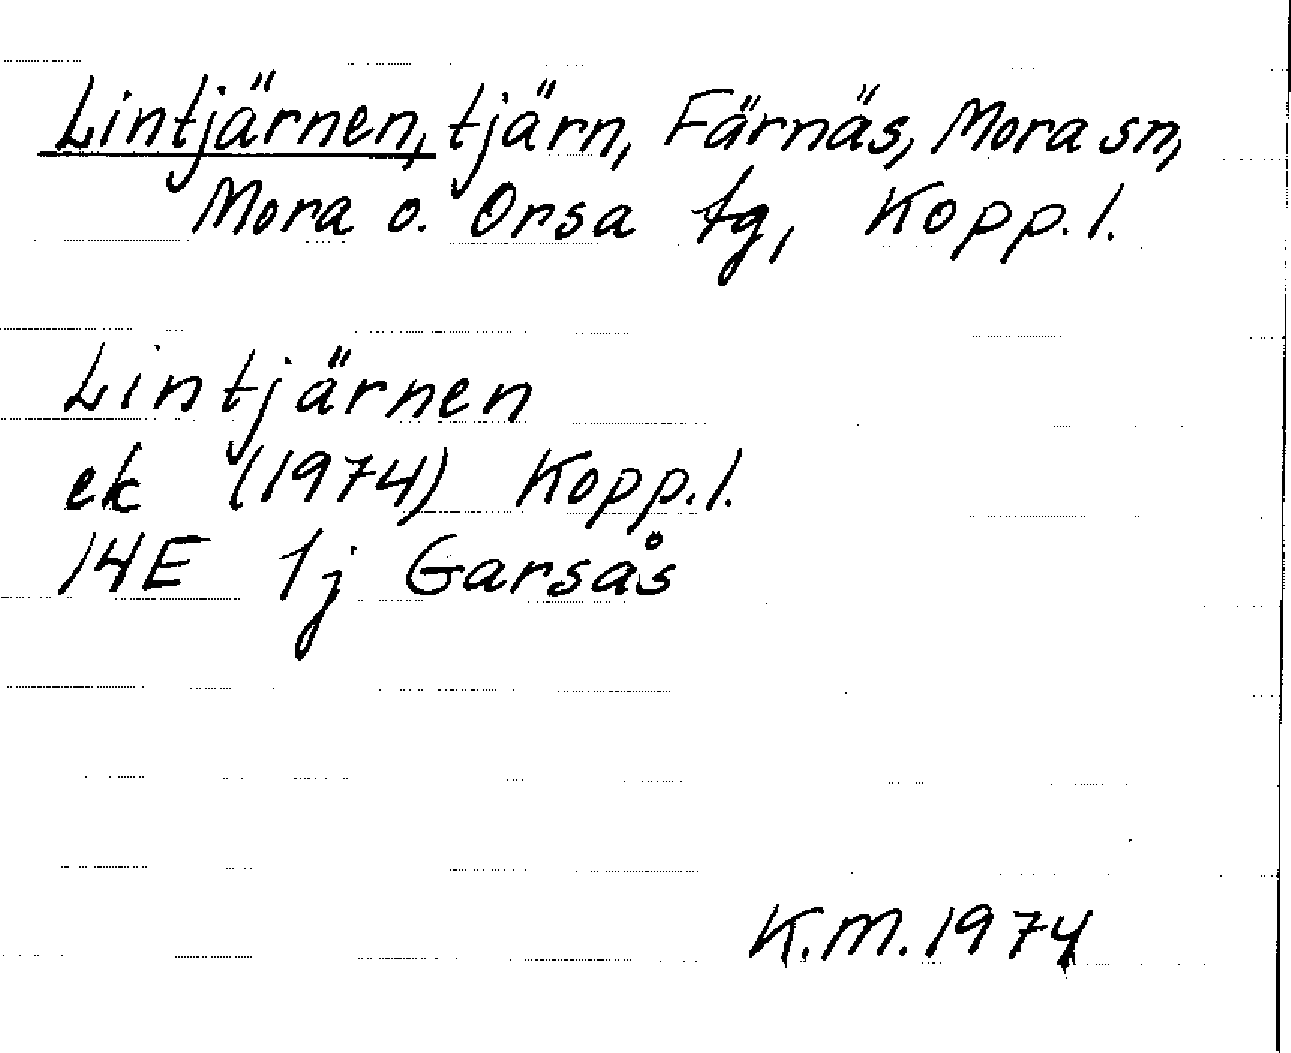 Lintjärnen, tjärn, Färnäs, Mora sn,
Mora o. Orsa tg, Kopp. l.
Lintjärnen
ek (1974) Kopp. l.
14E 1j Garsås
K.M. 1974